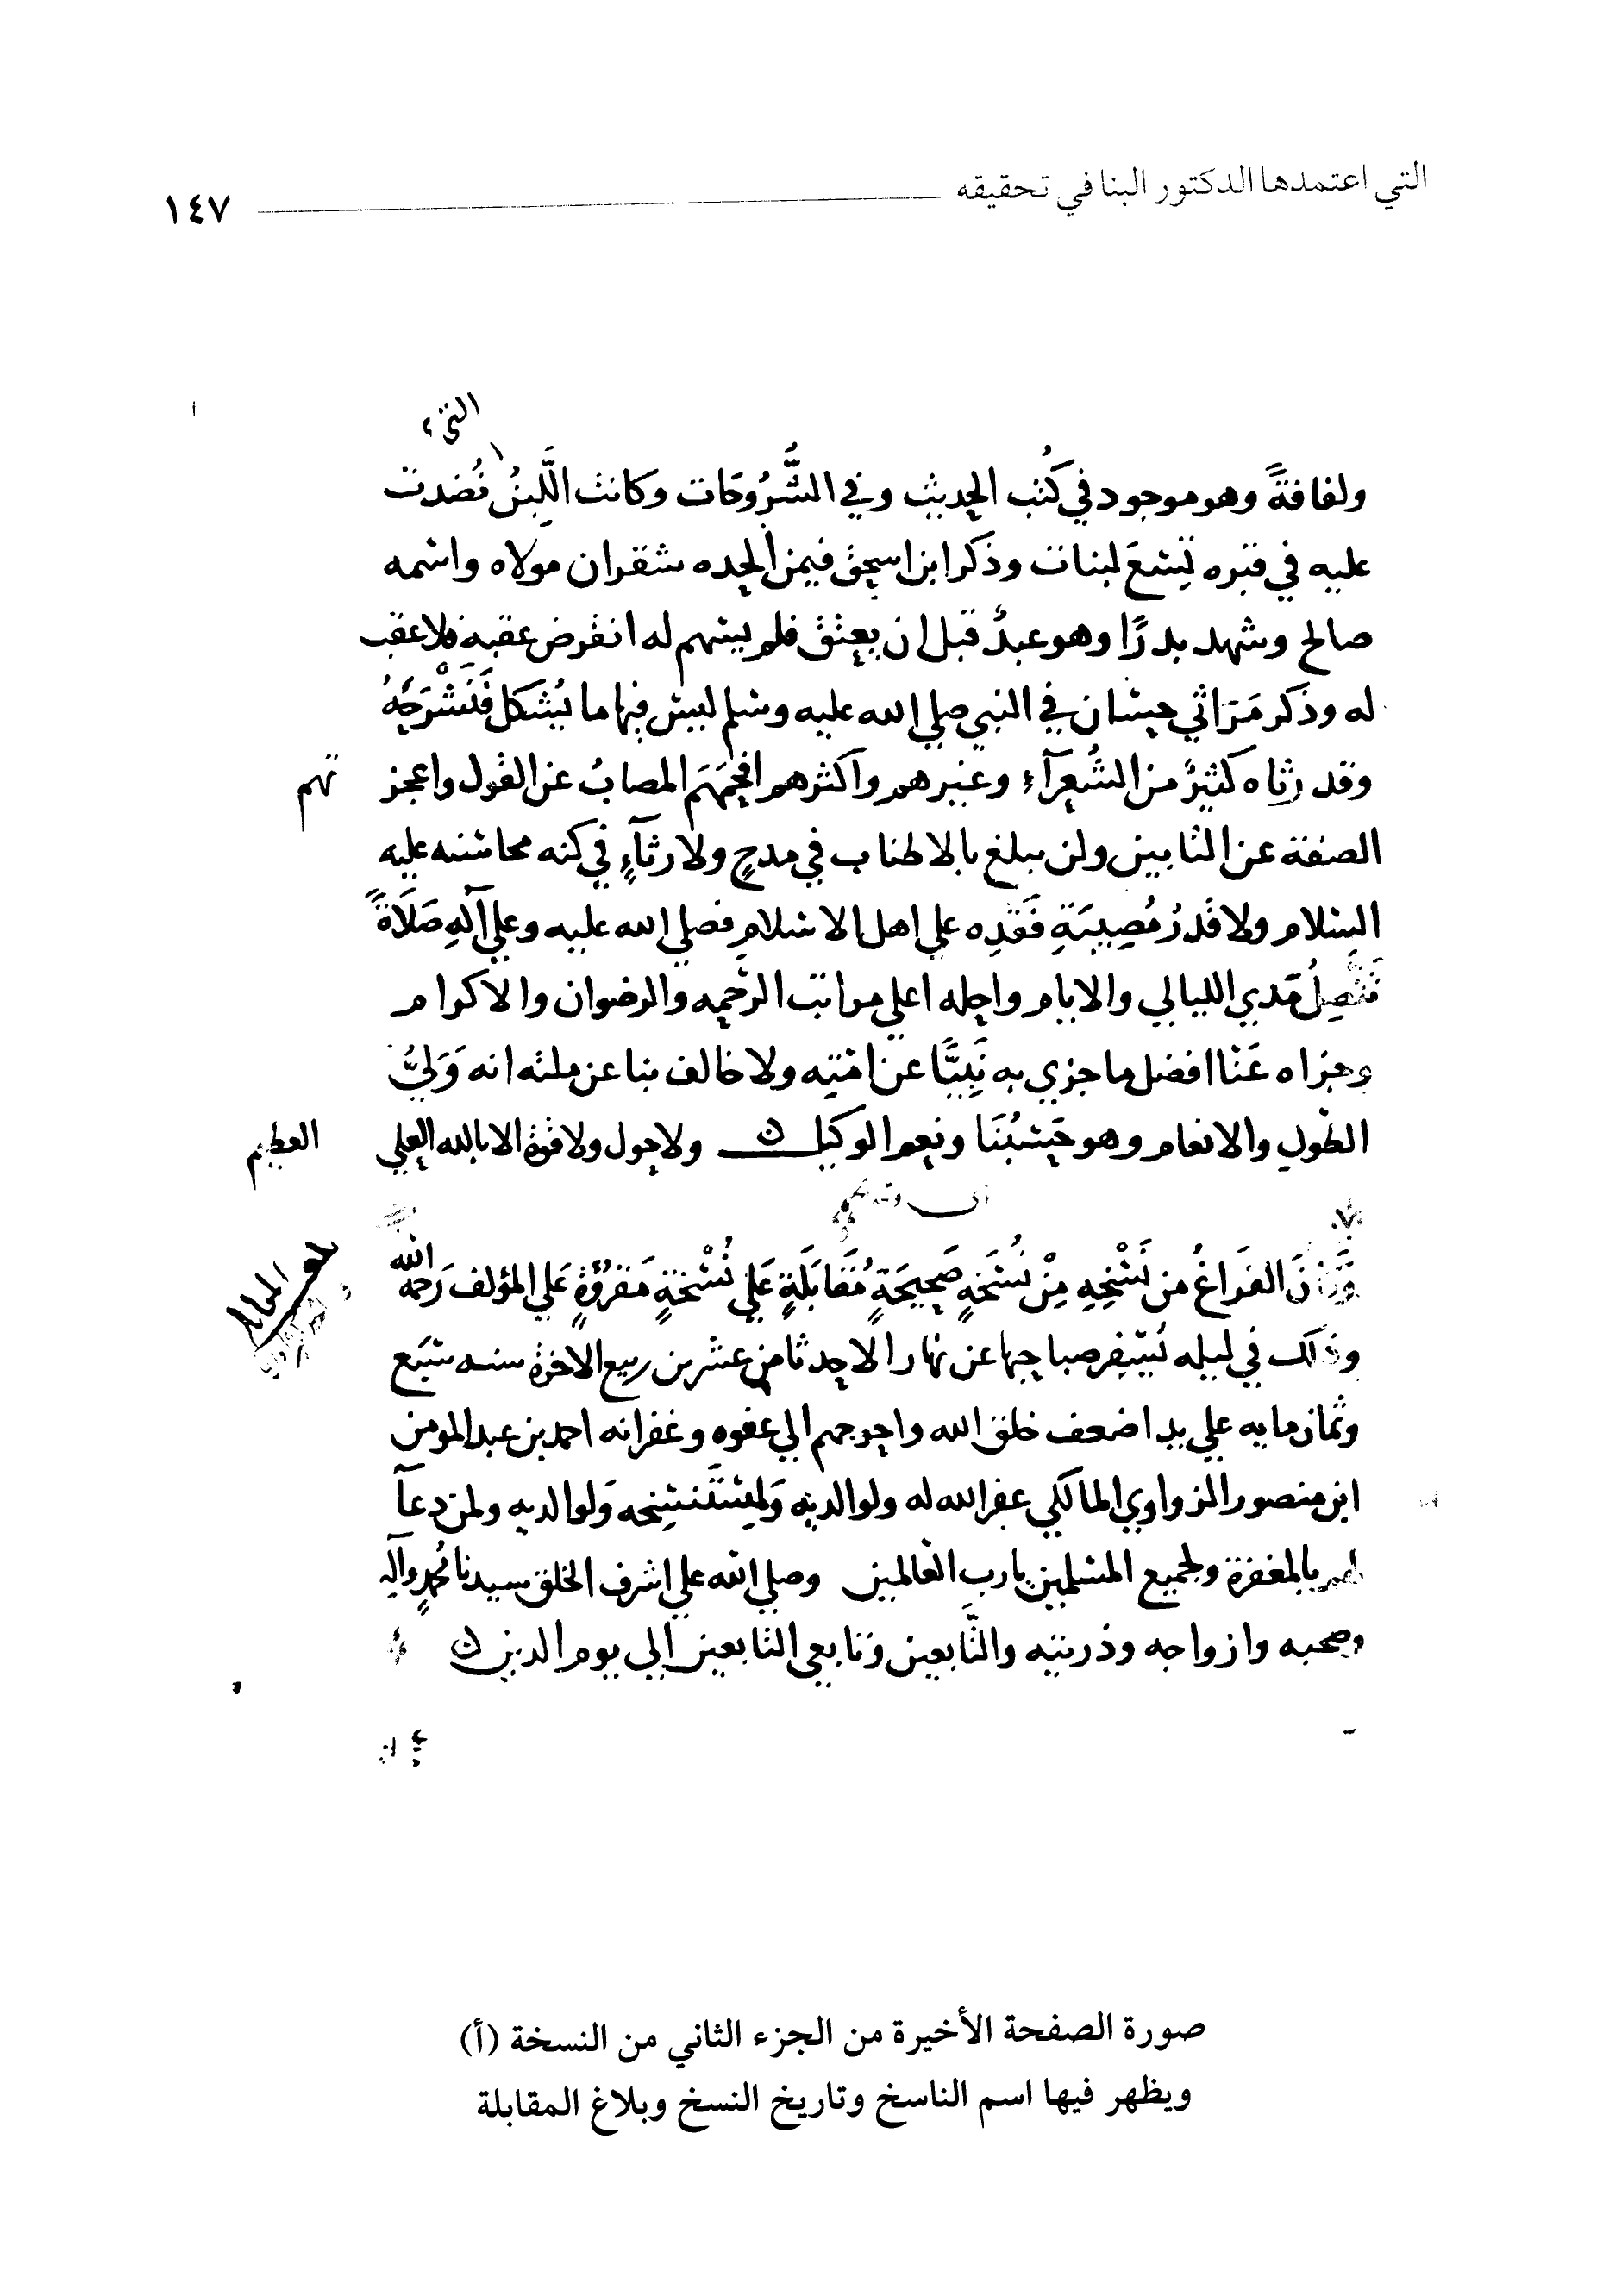 التي اعتمدها الدكتور البنا في تحقيقه ١٤٧
التي
ولفافةً وهو موجود في كُتب الحديث وفي الشُّرُوحَات وكانت اللَّبِنُ نُضدت
عليه في قبره تِسْعَ لبنات وذكر ابن اسحق فيمن ألحده شقران مولاه واسمه
صالح وشهد بدرًا وهو عبدٌ قبل ان يعتق فلم يسهم له انقرض عقبه فلا عقب
له وذكر مَرَاثي حسان في النبي صلي الله عليه وسلم ليس فيها ما يُشكل فَنَشْرَحُهُ
وقد رثاه كثيرٌ من الشُعرآء وغيرهم واكثرهم افحمَهَم المصابُ عن القول واعجز تهم
الصفة عن التابين ولن يبلغ بالاطناب في مدحٍ ولا رثآءٍ في كنه محاسنه عليه
السلام ولا قَدرُ مُصِيبَةِ فَقْدِه علي اهل الاسلام فصلي الله عليه وعلي آلِهِ صَلَاةً
تَتَّصِلُ مَدي الليالي والايام واحله اعلي مراتب الرحمه والرضوان والاكرام
وجزاه عَنَّا افضل ما جزي به نَبِيًّا عن امّتِه ولا خالف بنا عن ملته انه وَلِيُّ
الطَّول والانعام وهو حَسْبُنَا ونعم الوكيل ولا حول ولا قوة الا بالله العلي العظيم
وَكَانَ الفَراغُ من نَسْخِهِ مِنْ نُسْخَةٍ صَحِيحَةٍ مُقَابَلَةٍ عَلي نُسْخَةٍ مَقرُوَّةٍ عَلي المؤلف رَحمه الله
وذلك في ليله تُسْفِر صباحها عن نهار الاحد ثامن عشرين ربيع الاخرة سنه سَبْع
وثمان مايه علي يد اضعف خلق الله واحوجهم الي عفوه وغفرانه احمد بن عبد المومن
ابن منصور الزواوي المالكي غفر الله له ولوالديه وَلِمُسْتَنْسِخه وَلوالديه ولمن دعآ
لهم بالمغفرة ولجميع المسلمين يا رب العالمين وصلي الله علي اشرف الخلق سيدنا مُحمدٍ وآله
وصحبه وازواجه وذريته والتَّابعين وتابعي التابعين الي يوم الدين
صورة الصفحة الأخيرة من الجزء الثاني من النسخة (أ)
ويظهر فيها اسم الناسخ وتاريخ النسخ وبلاغ المقابلة